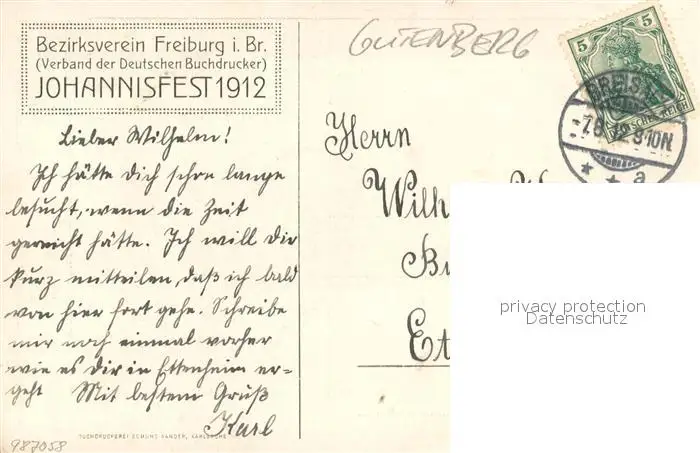 Bezirksverein Freiburg i. Br.
(Verband der Deutschen Buchdrucker)
JOHANNISFEST 1912
Lieber Wilhelm!
Ich hätte dich schon lange
besucht, wenn die Zeit
gereicht hätte. Ich will Dir
kurz mitteilen, daß ich bald
von hier fort gehe. Schreibe
mir noch einmal vorher
wie es dir in Ettenheim er=
geht Mit bestem Gruß
Karl
GUTENBERG
5 5
DEUTSCHES REICH
BREISA
12 9-10N
a
Herrn
Wilh
Et
privacy protection
Datenschutz
BUCHDRUCKEREI KARLSRUHE
987058